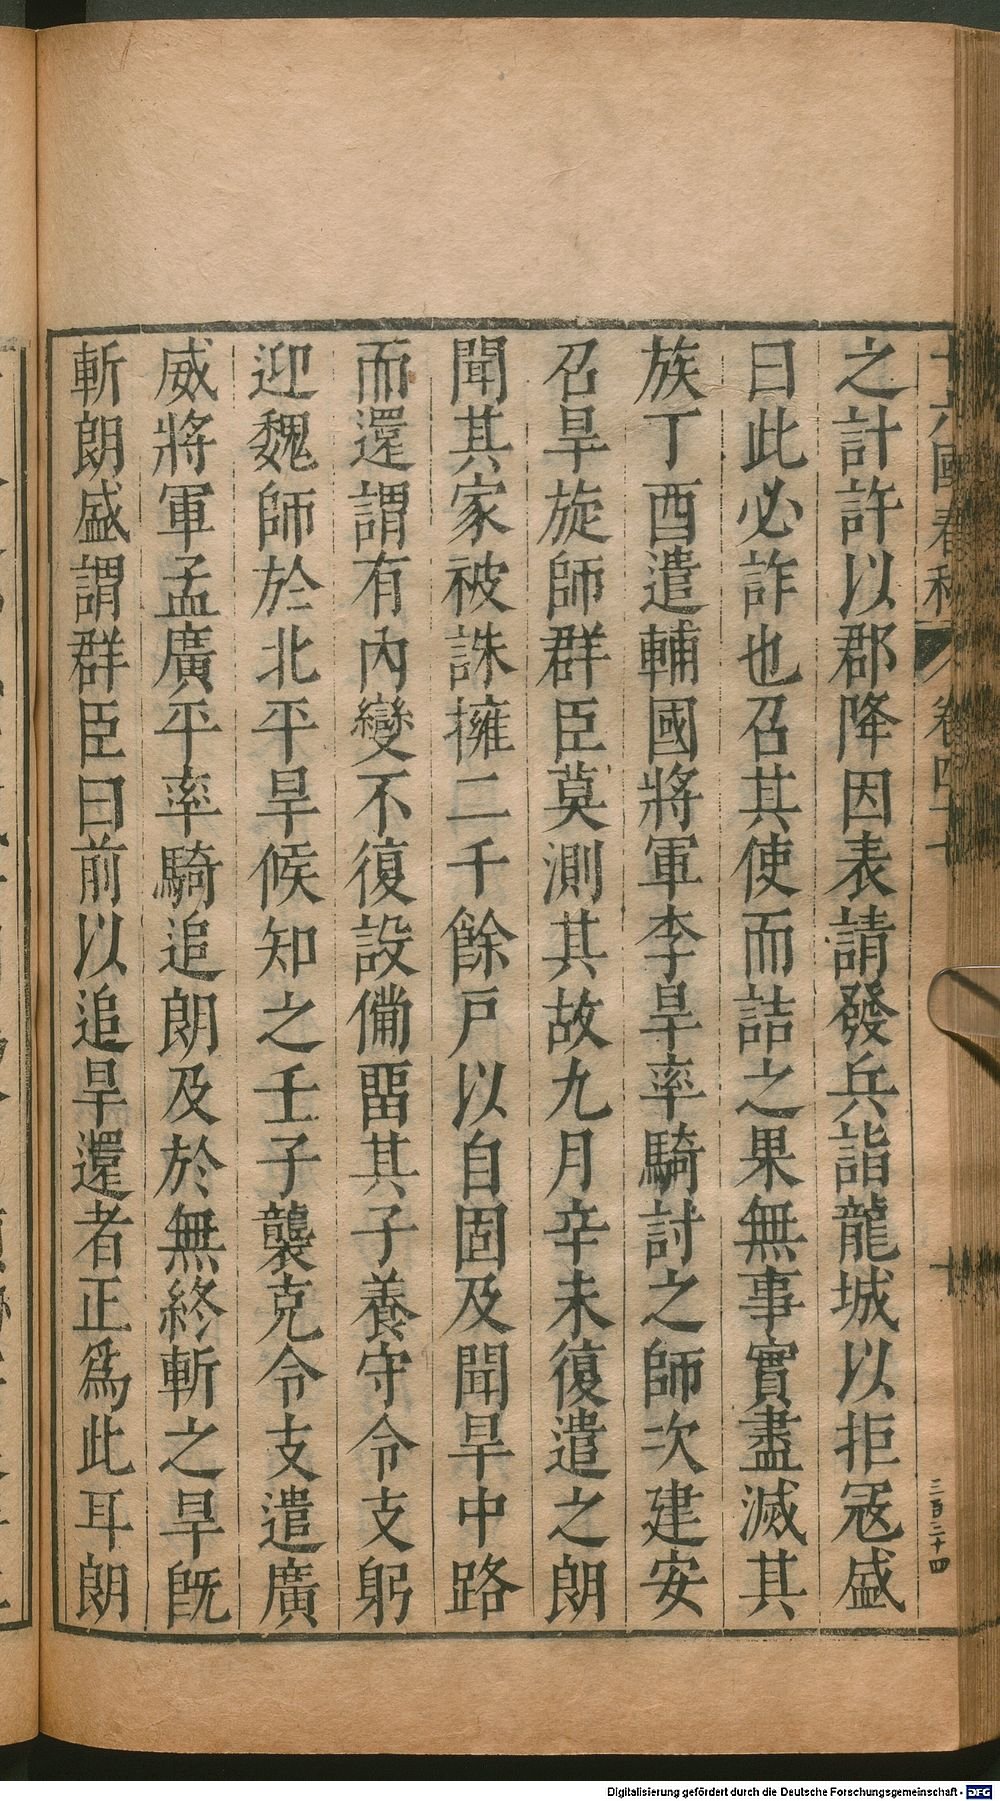 十六國春秋 卷四十七 十
三百二十四
之計許以郡降因表請發兵詣龍城以拒寇盛
曰此必詐也召其使而詰之果無事實盡滅其
族丁酉遣輔國將軍李旱率騎討之師次建安
召旱旋師群臣莫測其故九月辛未復遣之朗
聞其家被誅擁二千餘戸以自固及聞旱中路
而還謂有內變不復設俻畱其子養守令支躬
迎魏師於北平旱候知之壬子襲克令支遣廣
威將軍孟廣平率騎追朗及於無終斬之旱旣
斬朗盛謂群臣曰前以追旱還者正爲此耳朗
Digitalisierung gefördert durch die Deutsche Forschungsgemeinschaft - DFG